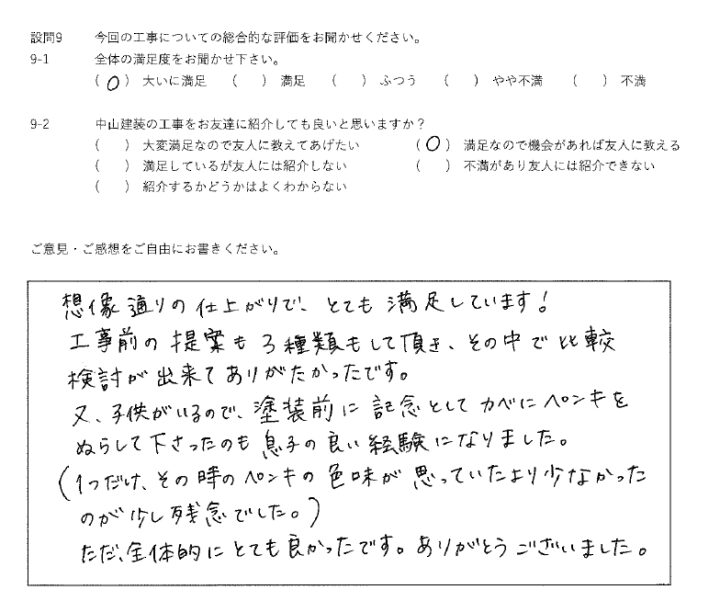 設問9 今回の工事についての総合的な評価をお聞かせください。
9-1 全体の満足度をお聞かせ下さい。
(○) 大いに満足 ( ) 満足 ( ) ふつう ( ) やや不満 ( ) 不満
9-2 中山建装の工事をお友達に紹介しても良いと思いますか？
( ) 大変満足なので友人に教えてあげたい (○) 満足なので機会があれば友人に教える
( ) 満足しているが友人には紹介しない ( ) 不満があり友人には紹介できない
( ) 紹介するかどうかはよくわからない
ご意見・ご感想をご自由にお書きください。
想像通りの仕上がりで、とても満足しています!
工事前の提案も3種類もして頂き、その中で比較
検討が出来てありがたかったです。
又、子供がいるので、塗装前に記念としてカベにペンキを
ぬらして下さったのも息子の良い経験になりました。
(1つだけ、その時のペンキの色味が思っていたより少なかった
のが少し残念でした。)
ただ、全体的にとても良かったです。ありがとうございました。